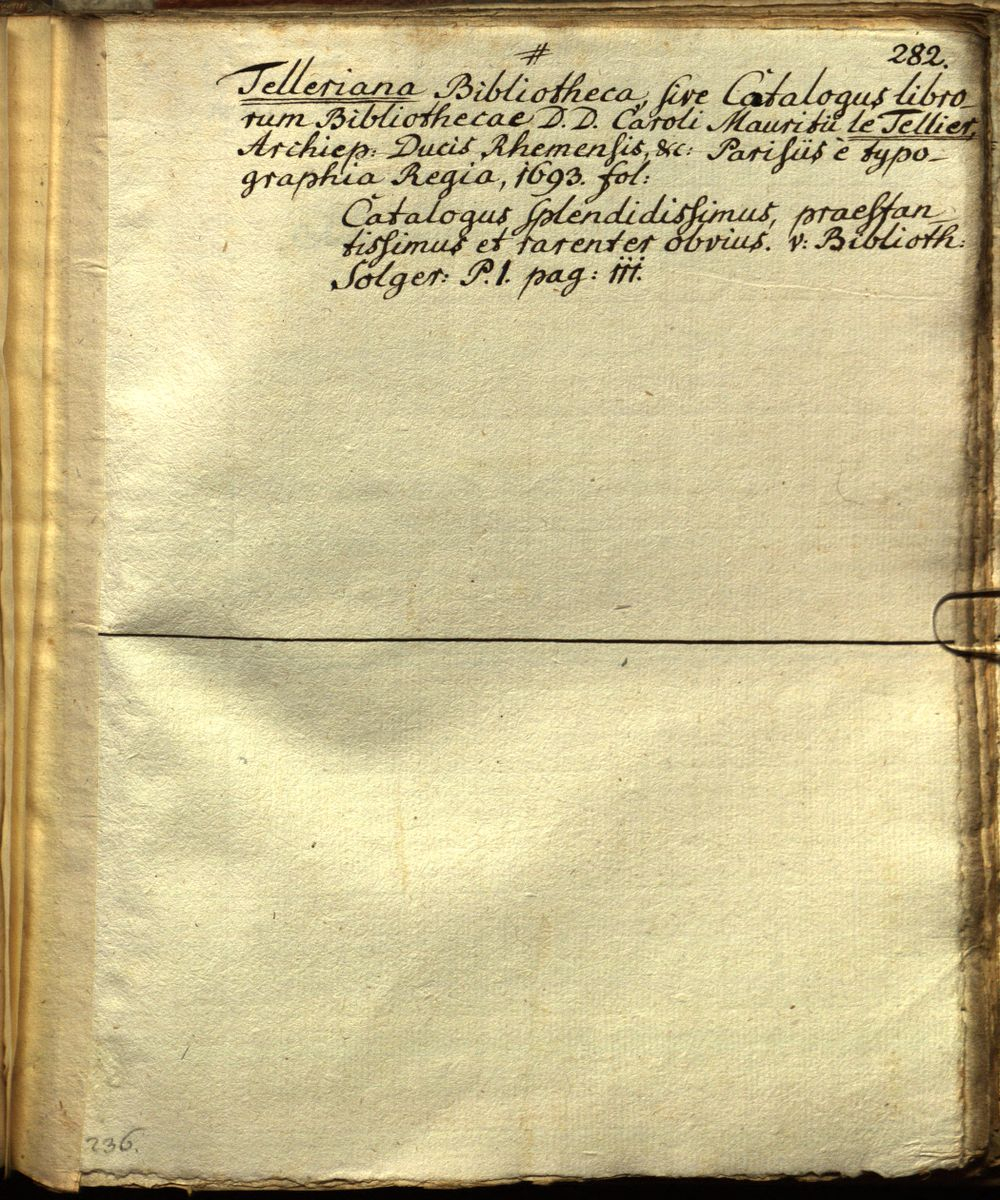 #
282.
Telleriana Bibliotheca, sive Catalogus libro-
rum Bibliothecae D. D. Caroli Mauritii le Tellier,
Archiep: Ducis Rhemensis, &c: Parisiis è typo-
graphia Regia, 1693. fol:
Catalogus splendidissimus, praestan-
tissimus et rarenter obvius. v: Biblioth:
Solger: P. I. pag: iii.
236.